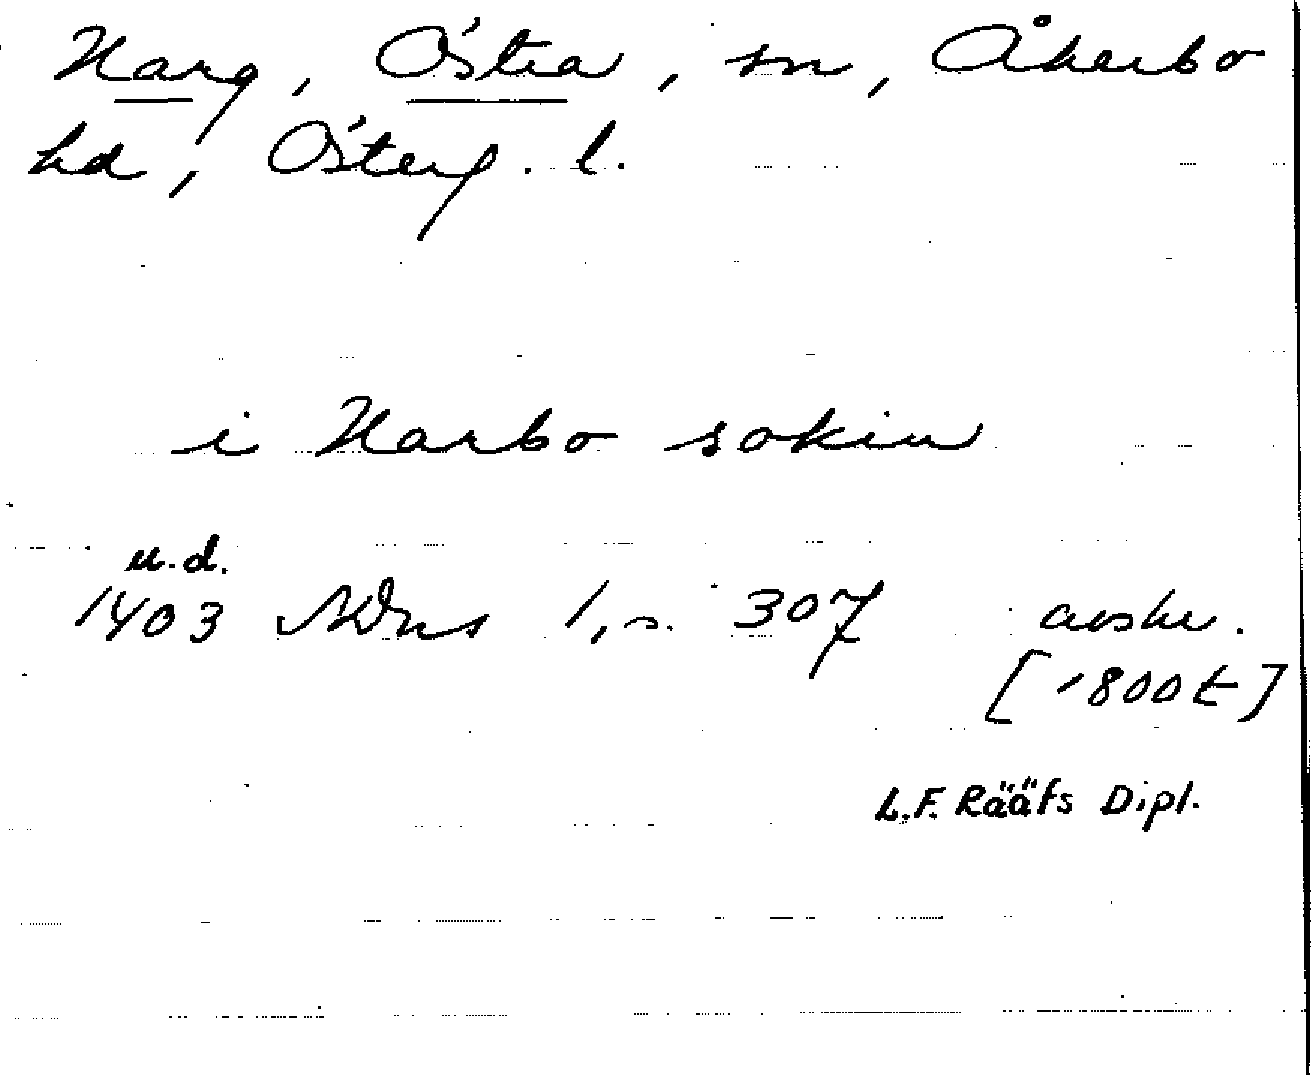 Harg, Östra, sn, Åkerbo
hd, Österg. l.
i Harbo sokin
u.d.
1403 ADns 1, s. 307 avskr.
[1800t]
L.F. Rääfs Dipl.